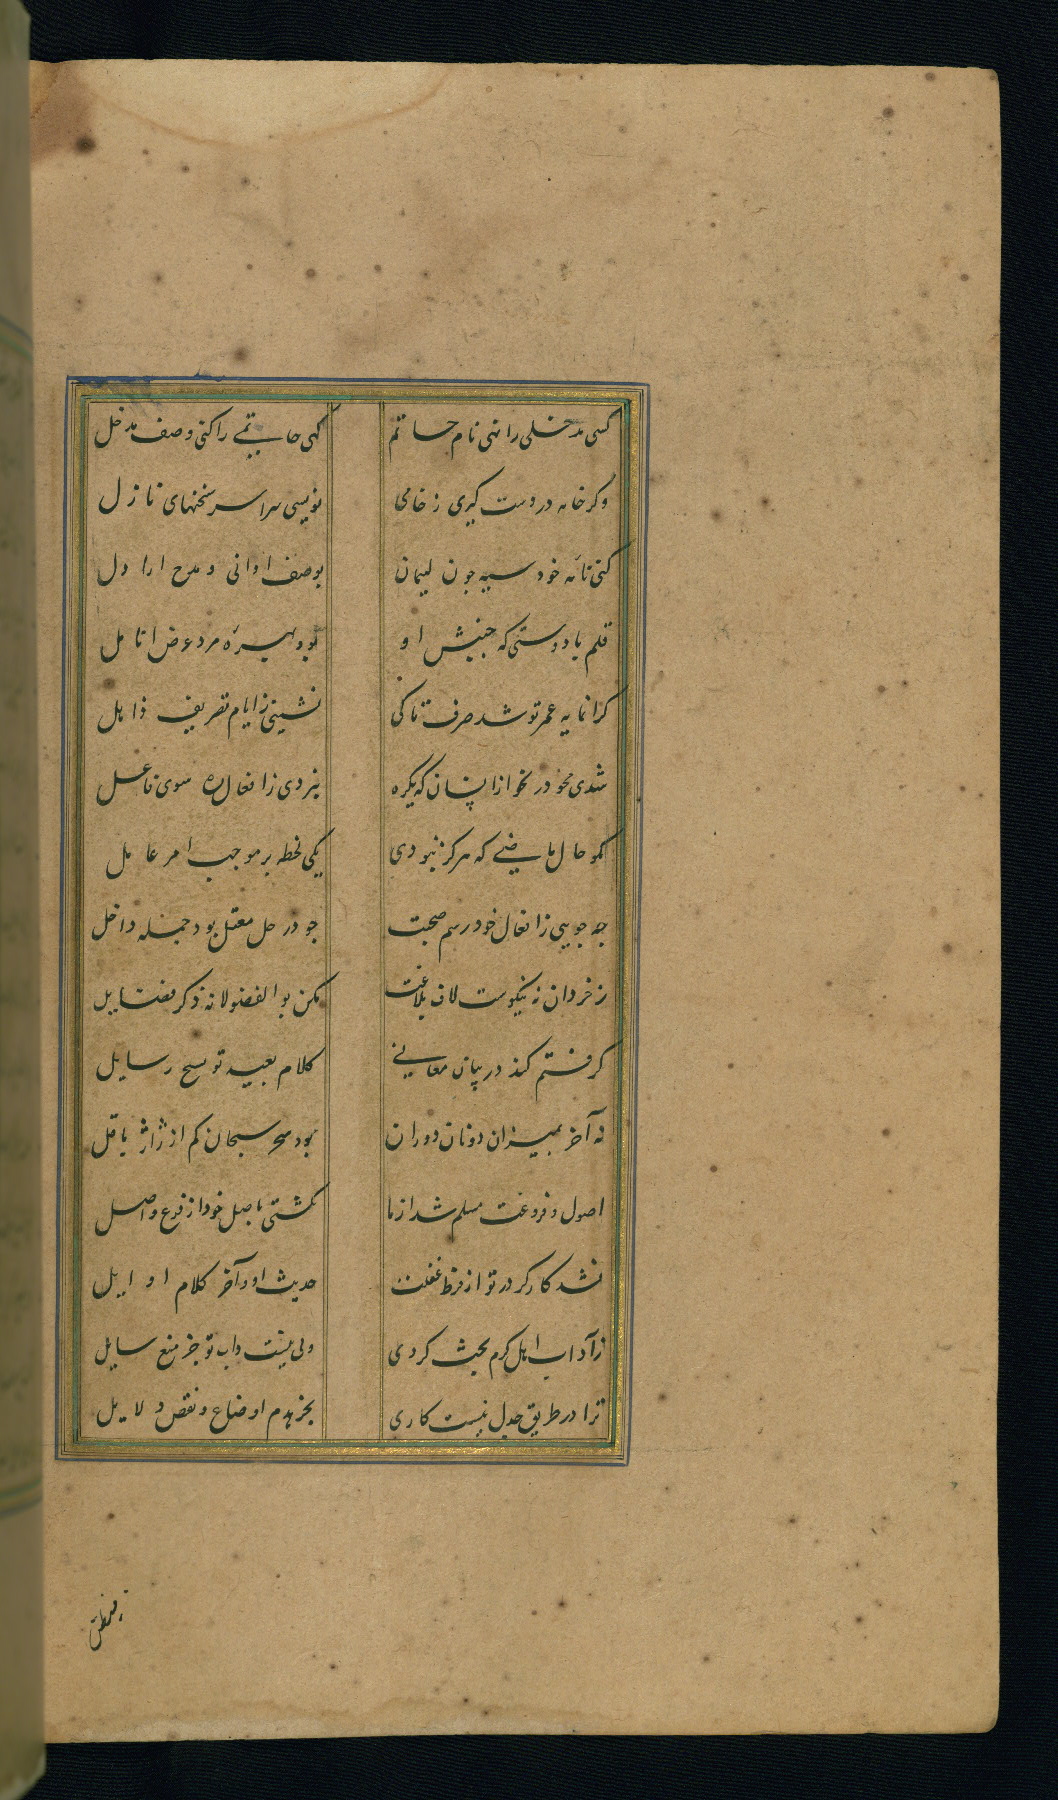 کهی مدخلی را نهی نام حاتم
کهی حاتمی را کنی وصف مدخل
وکر خامه در دست کیری ز خامی
نویسی سراسر سخنهای نازل
کنی نامه خود سیه چون لییمان
بوصف ادانی و مدح اراذل
قلم باد دستی که جنبش او
بود بهره مرد عض انامل
کرانمایه عمر تو شد صرف تا کی
نشینی ز ایام تصریف ذاهل
شدی محو در نحو ازانسان که یکره
نبردی ز افعال ره سوی فاعل
مکو حال ماضی که هرکز نبودی
یکی لحظه بر موجب امر عامل
چه جویی ز افعال خود رسم صحت
چو در حل معتل بود جمله داخل
ز خردان نه نیکوست لاف بلاغت
مکن بوالفضولانه ذکر فضایل
کرفتم کند در بیان معانی
کلام بعید تو سیح رسایل
نه آخر بمیزان دونان دوران
بود سحر سحبان کم از ژاژ باقل
اصول و فروعت مسلم شد از ما
کشتی باصل خود از فرع واصل
نشد کارکر در تو از فرط غفلت
حدیث اواخر کلام اوایل
ز آداب اهل کرم بحث کردی
ولی نیست داب تو جز منع سایل
ترا در طریق جدل نیست کاری
بجز هدم اوضاع و نقض دلایل
ز منطق